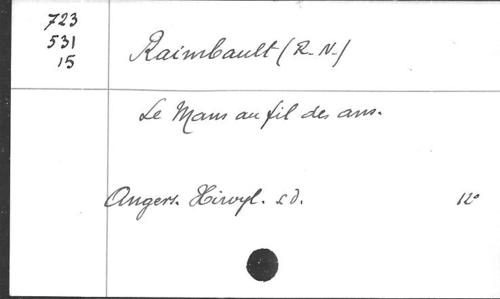 723
531
15
Raimbault (R-N-)
Le Mans au fil des ans.
Angers. Hirvyl. s d. 12°